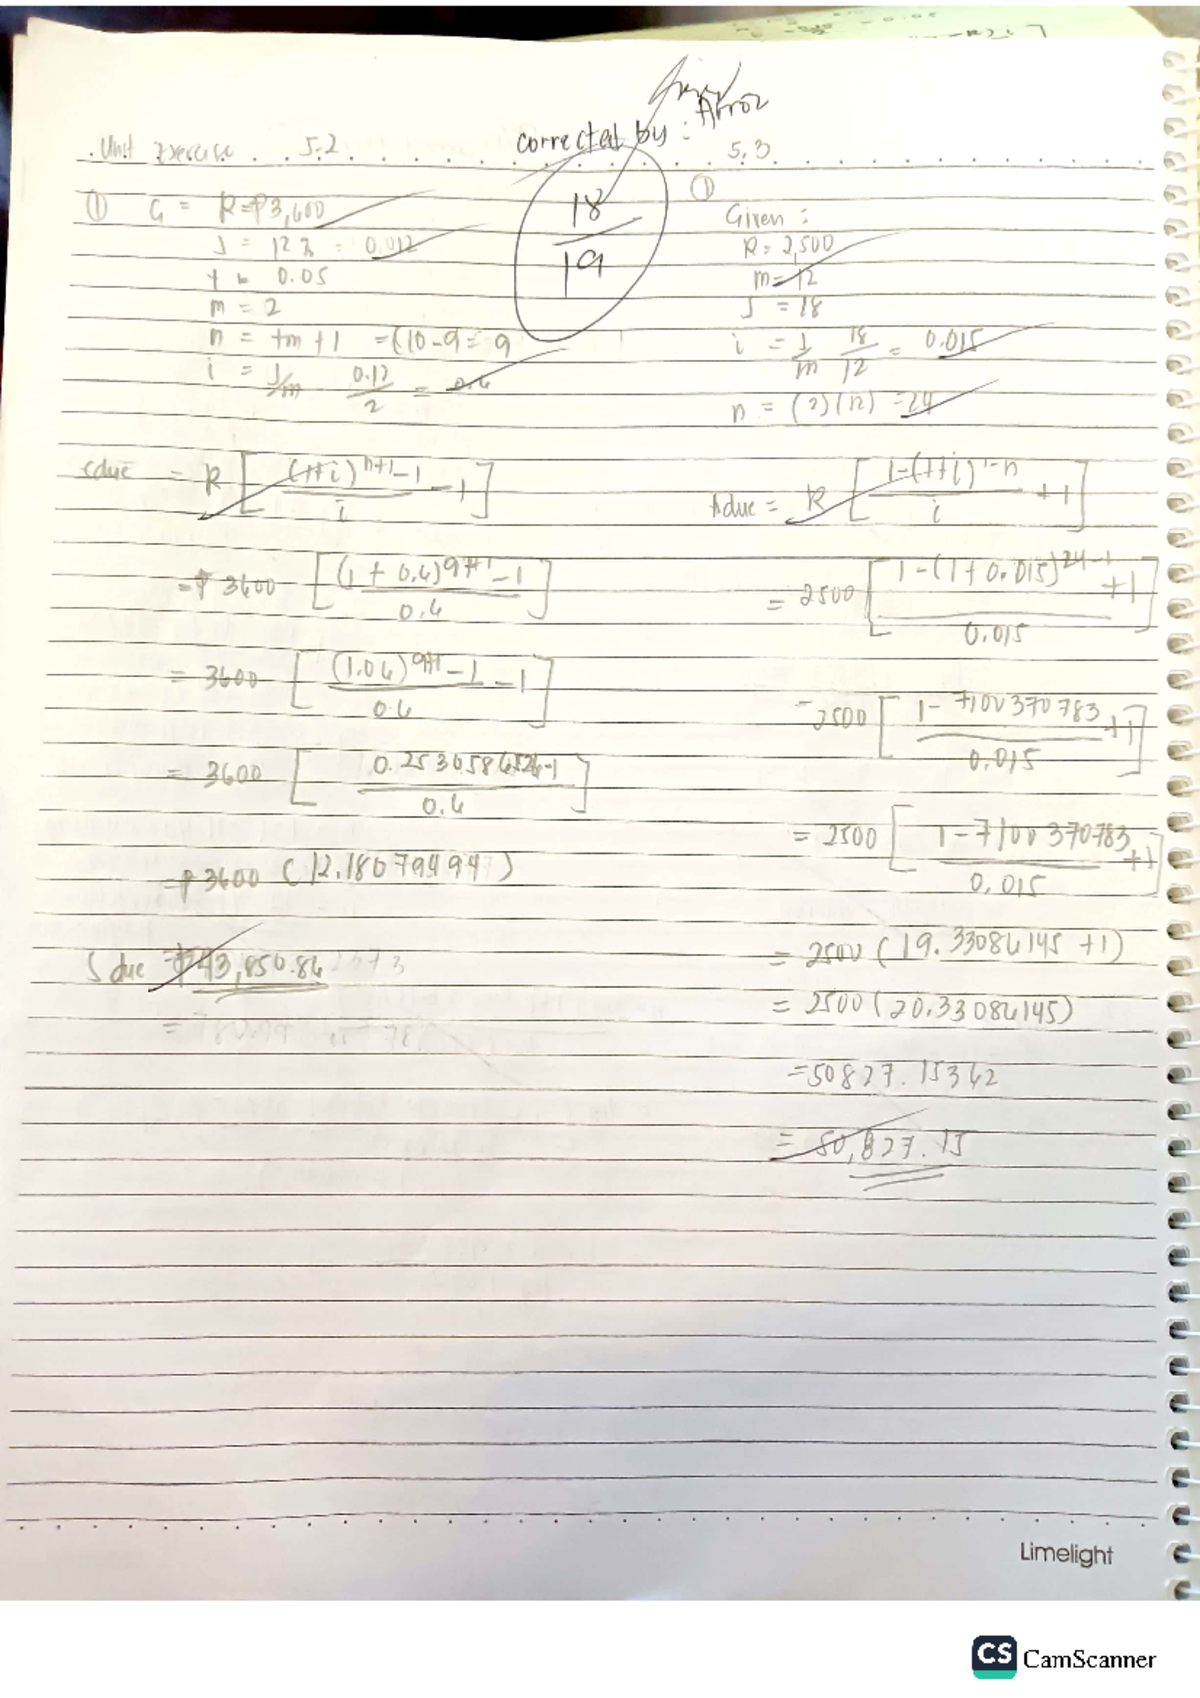 corrected by: Arroz
Unit Exercise 5.2
18
19
① G = R=₱3,600
J = 12% = 0.012
t = 0.05
m = 2
n = tm + 1 = (10-9 = 9
i = J/m 0.12/2 = 0.6
Sdue = R [(1+i)^n+1 - 1 / i - 1]
= ₱ 3600 [(1 + 0.6)^9+1 - 1 / 0.6]
= 3600 [(1.06)^9+1 - 1 / 0.6 - 1]
= 3600 [0.2530586526-1 / 0.6]
= ₱ 3600 (12.180794947)
S due = ₱43,850.86
5.3
①
Given :
R = 2,500
m = 12
J = 18
i = J/m 18/12 = 0.015
n = (2)(12) = 24
Adue = R [1-(1+i)^1-n / i + 1]
= 2500 [1-(1+0.015)^24-1 / 0.015 + 1]
= 2500 [1- 7100370783 / 0.015 + 1]
= 2500 [1-7100370783 / 0.015 + 1]
= 2500 (19.33086145 + 1)
= 2500 (20.33086145)
= 50827.15362
= 50,827.15
Limelight
CS CamScanner